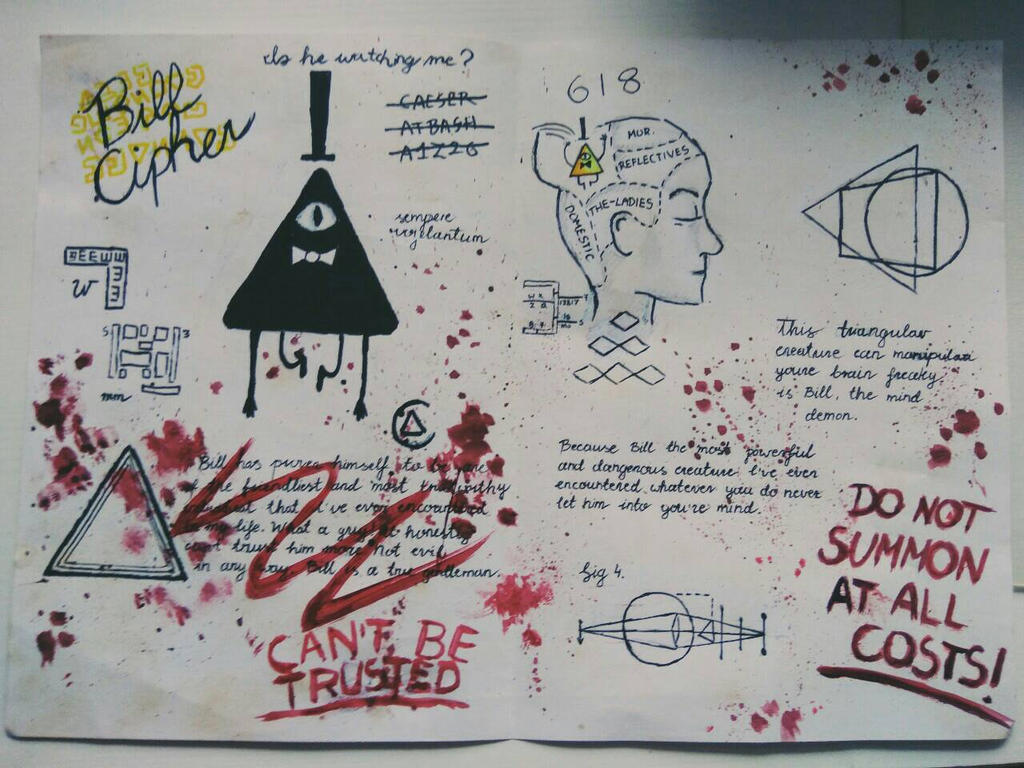 Bill
Cipher
Is he watching me?
CAESER
ATBASH
A1Z26
sempere
vigelantum
W
mm
Bill has himself to be one
of the friendliest and most trustworthy
that I've ever encountered
in my life. What a guy to honestly
can't trust him more Not evil
in any way. Bill is a true gentleman.
CAN'T BE
TRUSTED
618
MUR.
REFLECTIVES
THE-LADIES
DOMESTIC
This triangular
creature can
you're brain freaky
is Bill, the mind
demon.
Because Bill the most powerful
and dangerous creature I've ever
encountered, whatever you do never
let him into you're mind.
fig 4.
DO NOT
SUMMON
AT ALL
COSTS!